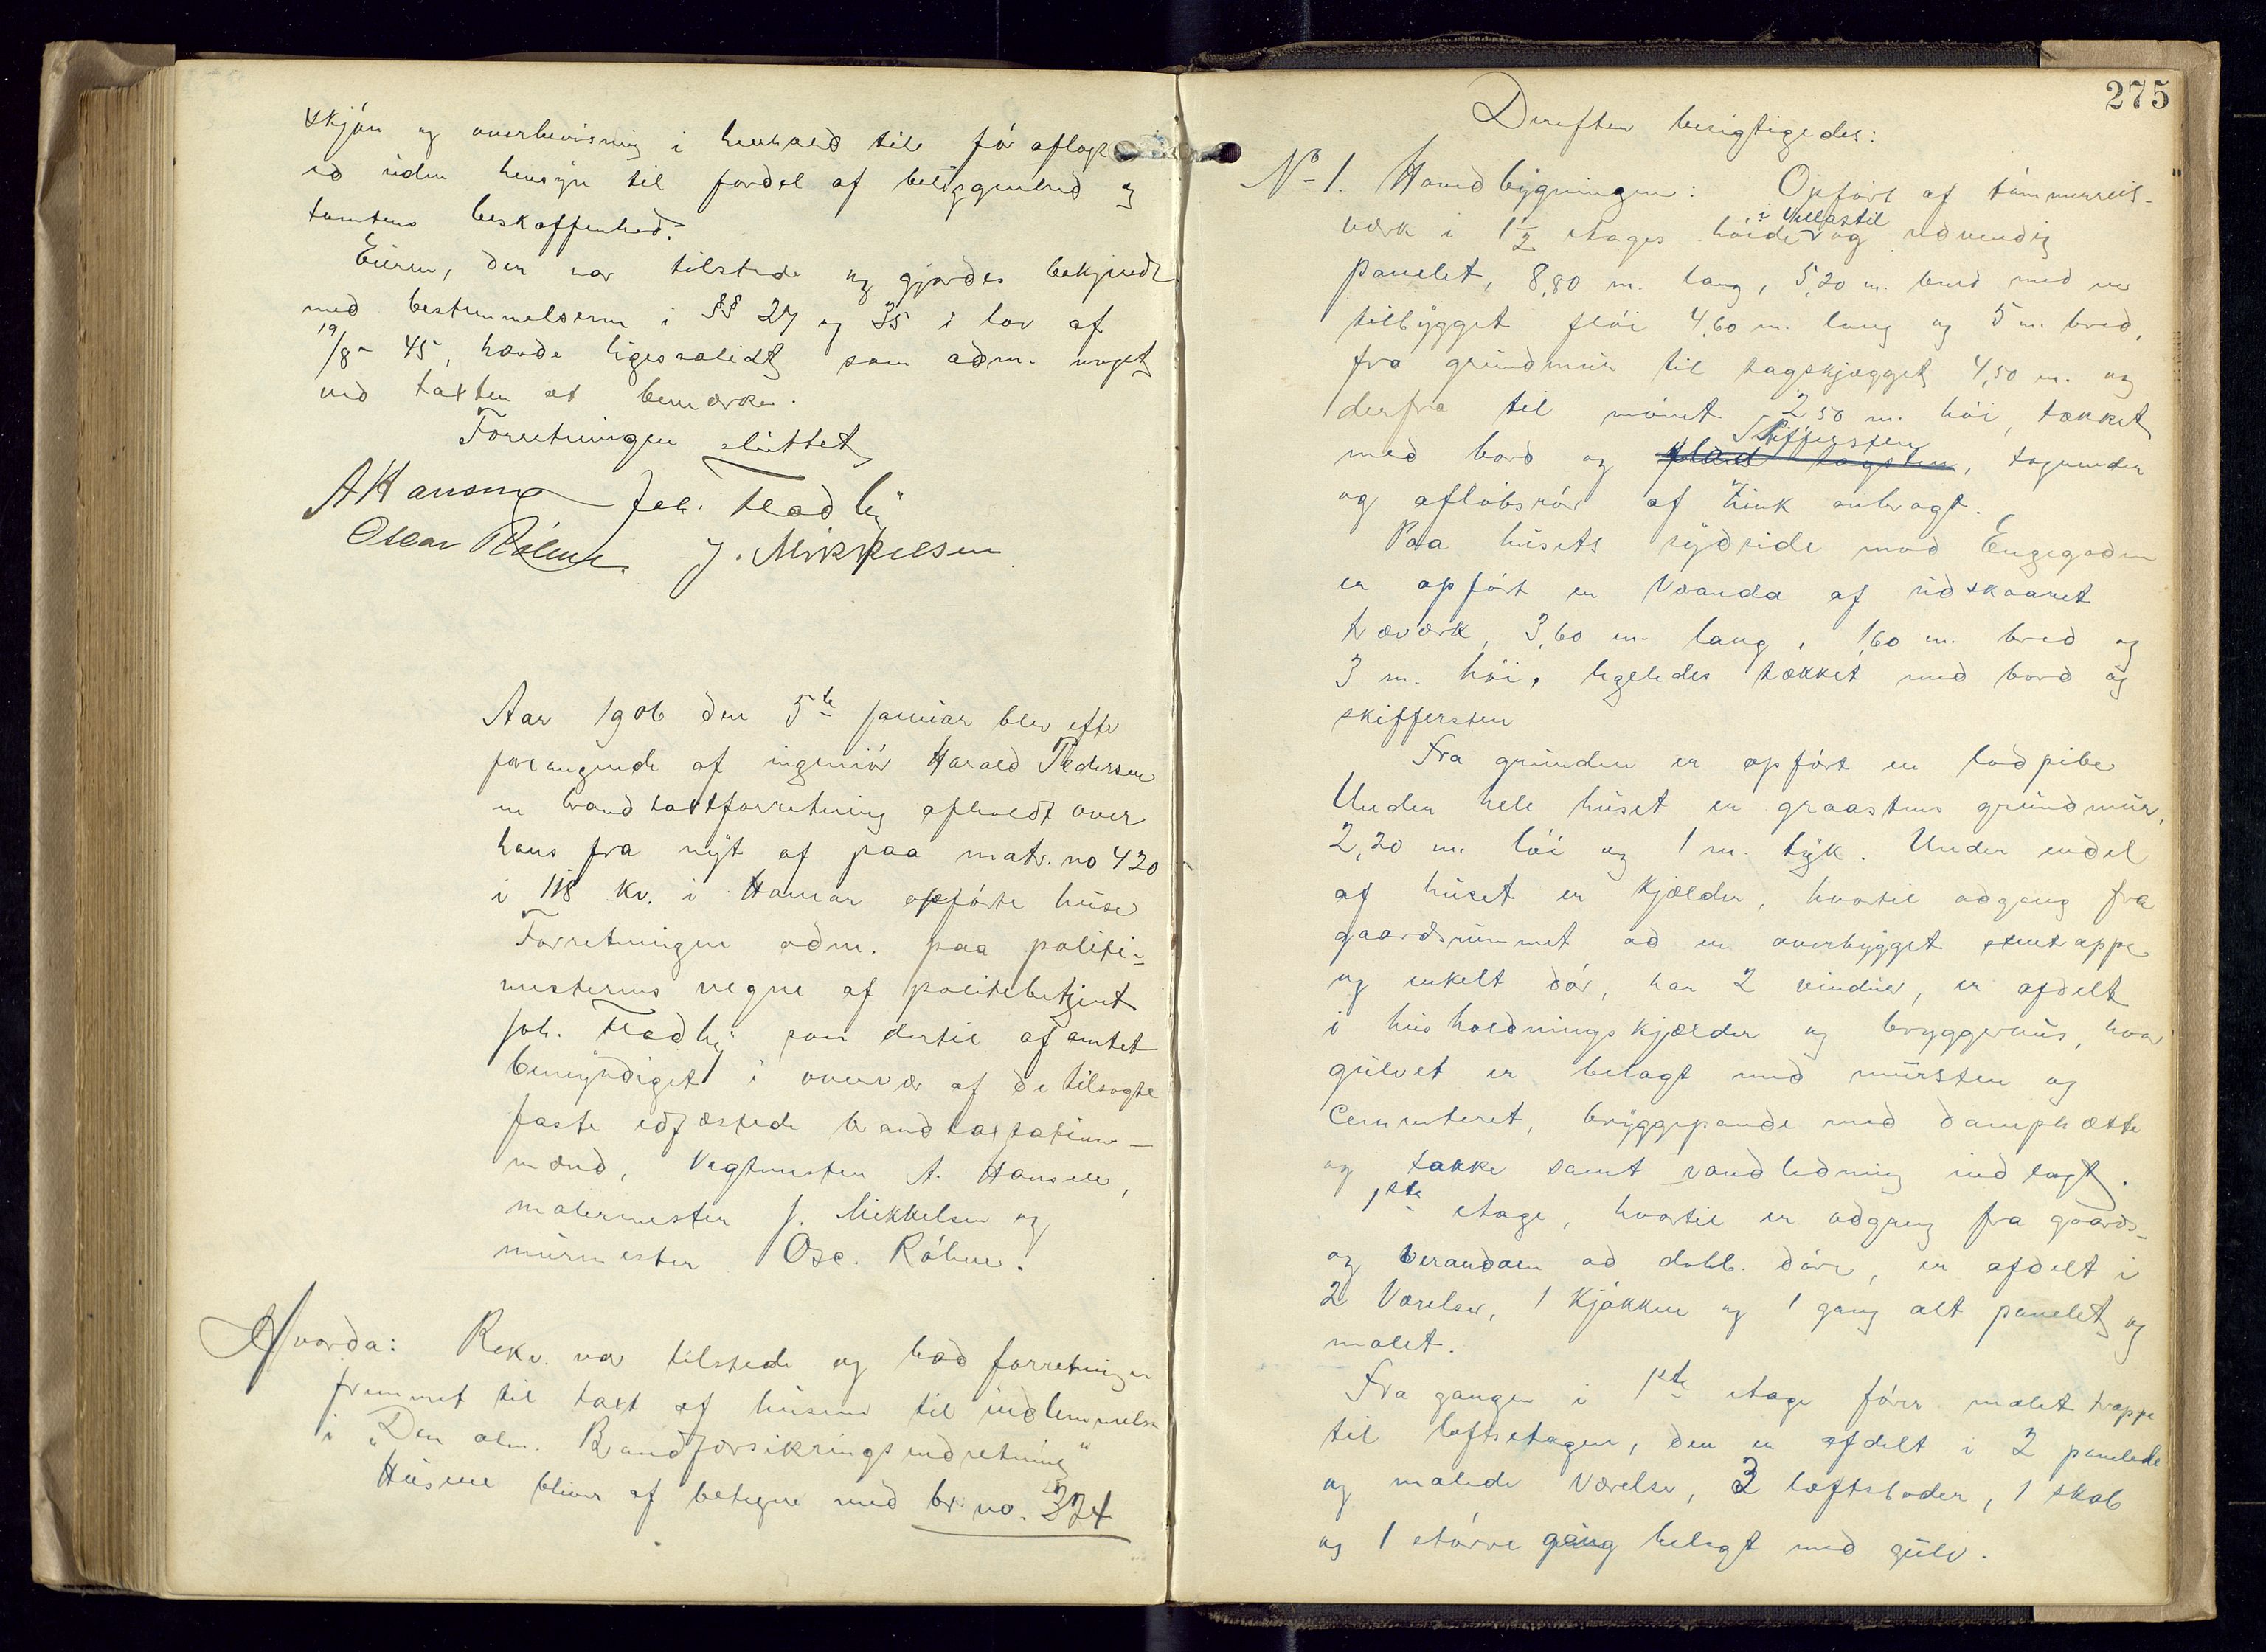 skjøn og overbevisning i henhold til før aflagt
ed uden hensyn til fordel af beliggenhed og
tomtens beskaffenhed.
Eieren, der var tilstede og gjordes bekjendt
med bestemmelserne i §§ 27 og 35 i lov af
19/8 - 45, havde ligesaalidt som adm. noget
ved taxten at bemærke.
Forretningen sluttet
A Hansen Joh. Fladby
Oscar Röhme J. Mikkelsen
Aar 1906 den 5te januar blev efter
forlangende af ingeniør Harald Pedersen
en brandtaxtforretning afholdt over
hans fra nyt af paa matr. no 420
i 118 Kv. i Hamar opførte huse
Forretningen adm. paa politi-
mesterens vegne af politibetjent
Joh. Fladby som dertil af amtet
bemyndiget i overvær af de tilsagte
faste edfæstede brandtaxtations-
mænd, Vagtmester A. Hansen,
malermester J. Mikkelsen og
murmester Osc. Röhme.
Hvorda: Rekv. var tilstede og bad forretningen
fremmet til taxt af husene til indlemmelse
i "Den alm. Brandforsikringsindretning"
Husene bliver at betegne med br. no. 324
275
Derefter besigtigedes:
No 1. Hovedbygningen: Opført af tømmerreis-
i Villastil
værk i 1 1/2 etages høide og udvendig
panelet, 8,80 m. lang, 5,20 m. bred med en
tilbygget fløi 4,60 m. lang og 5 m. bred,
fra grundmur til tagskjægget 4,50 m. og
derfra til mønet 2,50 m. høi, tækket
Skiffersten
med bord og flad tagsten, tagrender
og afløbsrør af zink anbragt.
Paa husets sydside mod Engegaden
er opført en Veranda af udskaaret
træværk, 3,60 m. lang, 1,60 m. bred og
3 m. høi, ligeledes tækket med bord og
skiffersten
Fra grunden er opført en lodpibe
Under hele huset er graastens grundmur,
2,20 m. høi og 1 m. tyk. Under endel
af huset er Kjælder, hvortil adgang fra
gaardsrummet ad en overbygget stentrappe
og enkelt dør, har 2 vinduer, er afdelt
i husholdningskjælder og bryggerhus, hvor
gulvet er belagt med mursten og
cementeret, bryggepande med damphætte
og takke samt vandledning indlagt.
1ste etage, hvortil er adgang fra gaards-
og verandaen ad dobb. døre, er afdelt i
2 Værelser, 1 Kjøkken og 1 gang alt panelet og
malet.
Fra gangen i 1ste etage fører malet trappe
til loftsetagen, den er afdelt i 2 panelede
og malede Værelser, 3 loftsboder, 1 skab
og 1 større gang belagt med gulv.